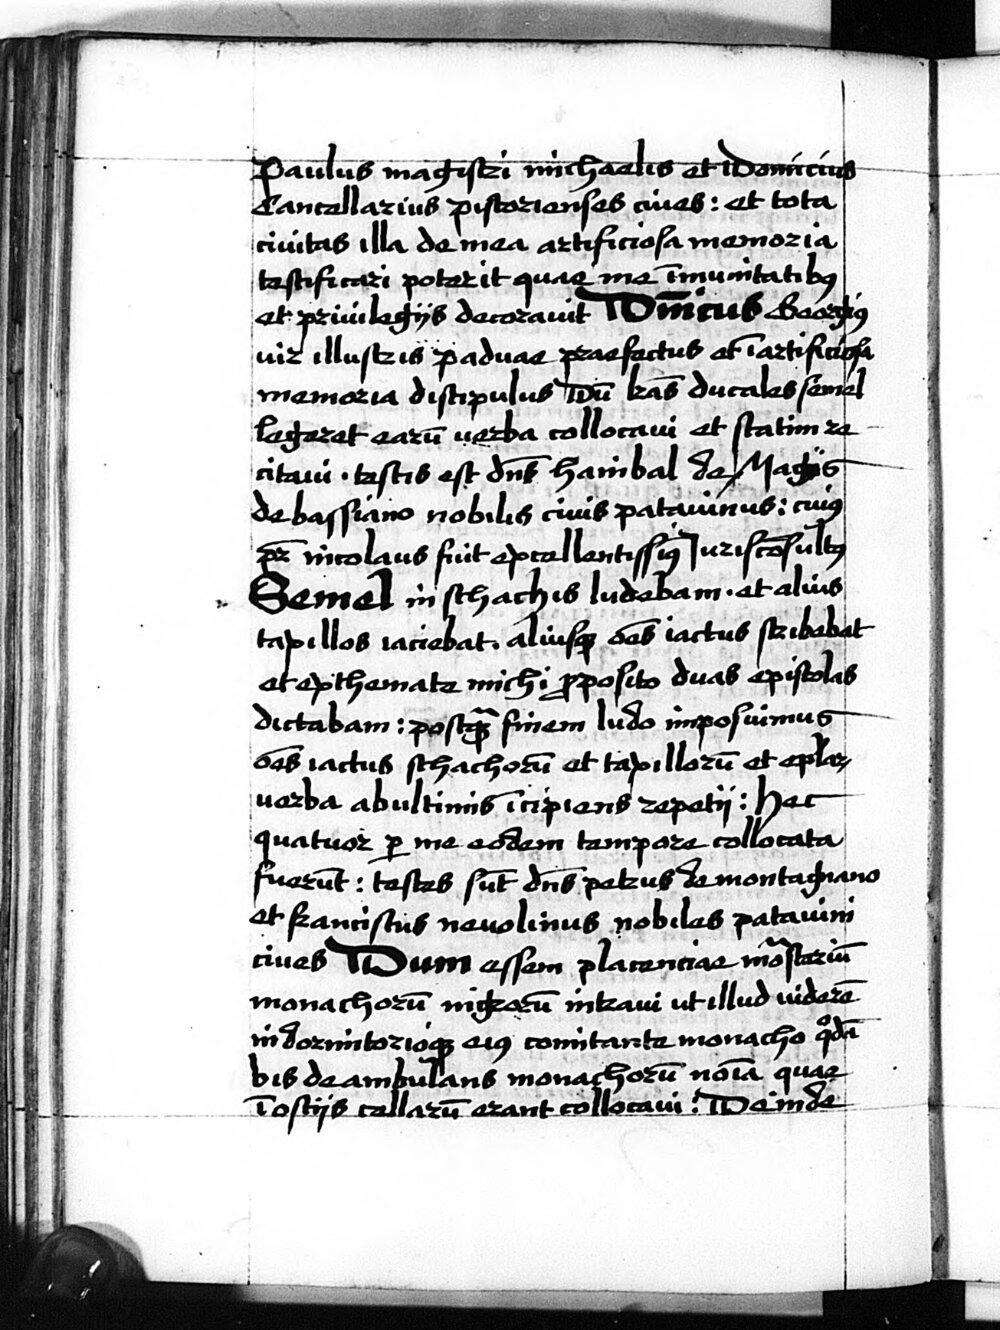 Paulus magistri michaelis et Dominicus
Cancellarius pistorienses ciues: et tota
ciuitas illa de mea artificiosa memoria
testificari poterit quae me īmunitatibꝯ
et priuilegijs decorauit Dn̄icus Georgiꝯ
uir illustris paduae praefectus et ī artificiosa
memoria discipulus Dū lr̄as ducales semel
legeret earū uerba collocaui et statim re
citaui · testis est dn̄s hanibal de Magijs
de bassiano nobilis ciuis patauinus: cuiꝯ
pr̄ nicolaus fuit excellentissiꝯ Juriscōsultꝯ
Semel in schachis ludebam · et alius
taxillos iaciebat. aliusqꝫ oēs iactus scribebat
et ex themate michi ꝓposito duas epistolas
dictabam: postqꝫ̄ finem ludo imposuimus
oēs iactus schachorū et taxillorū et ep̄larꝝ
uerba ab ultimis īcipiens repetij: hec
quatuor ꝑ me eodem tempore collocata
fuerūt: testes sūt dn̄s petrus de montagnano
et franciscus neuolinus nobiles patauini
ciues Dum essem placenciae mōasteriū
monachorū nigrorū intraui ut illud uiderē
in dormitorioqꝫ eiꝯ comitante monacho qͦdā
bis deambulans monachorū noīa quae
ī ostijs cellarū erant collocaui: Deinde